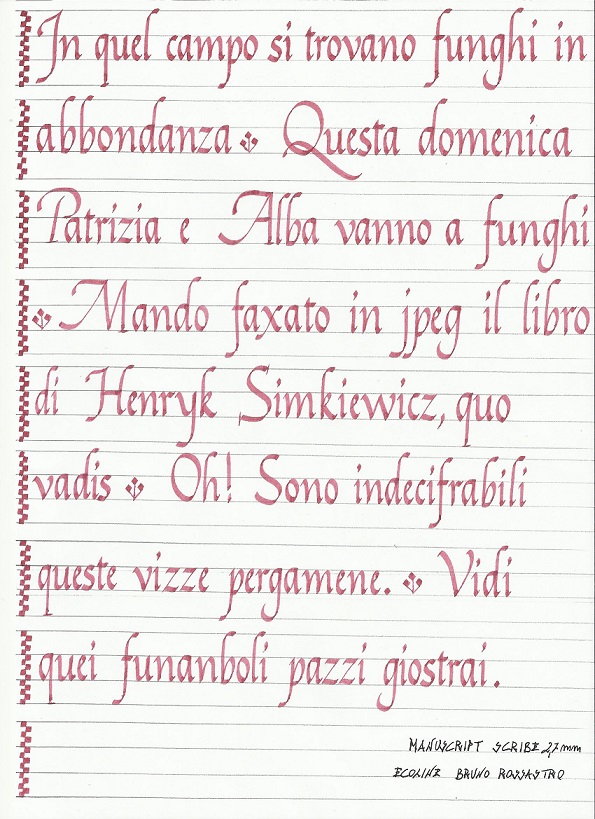 In quel campo si trovano funghi in
abbondanza Questa domenica
Patrizia e Alba vanno a funghi
Mando faxato in jpeg il libro
di Henryk Simkiewicz, quo
vadis Oh! Sono indecifrabili
queste vizze pergamene. Vidi
quei funanboli pazzi giostrai.
MANUSCRIPT SCRIBE 2,7 mm
ECOLINE BRUNO ROSSASTRO